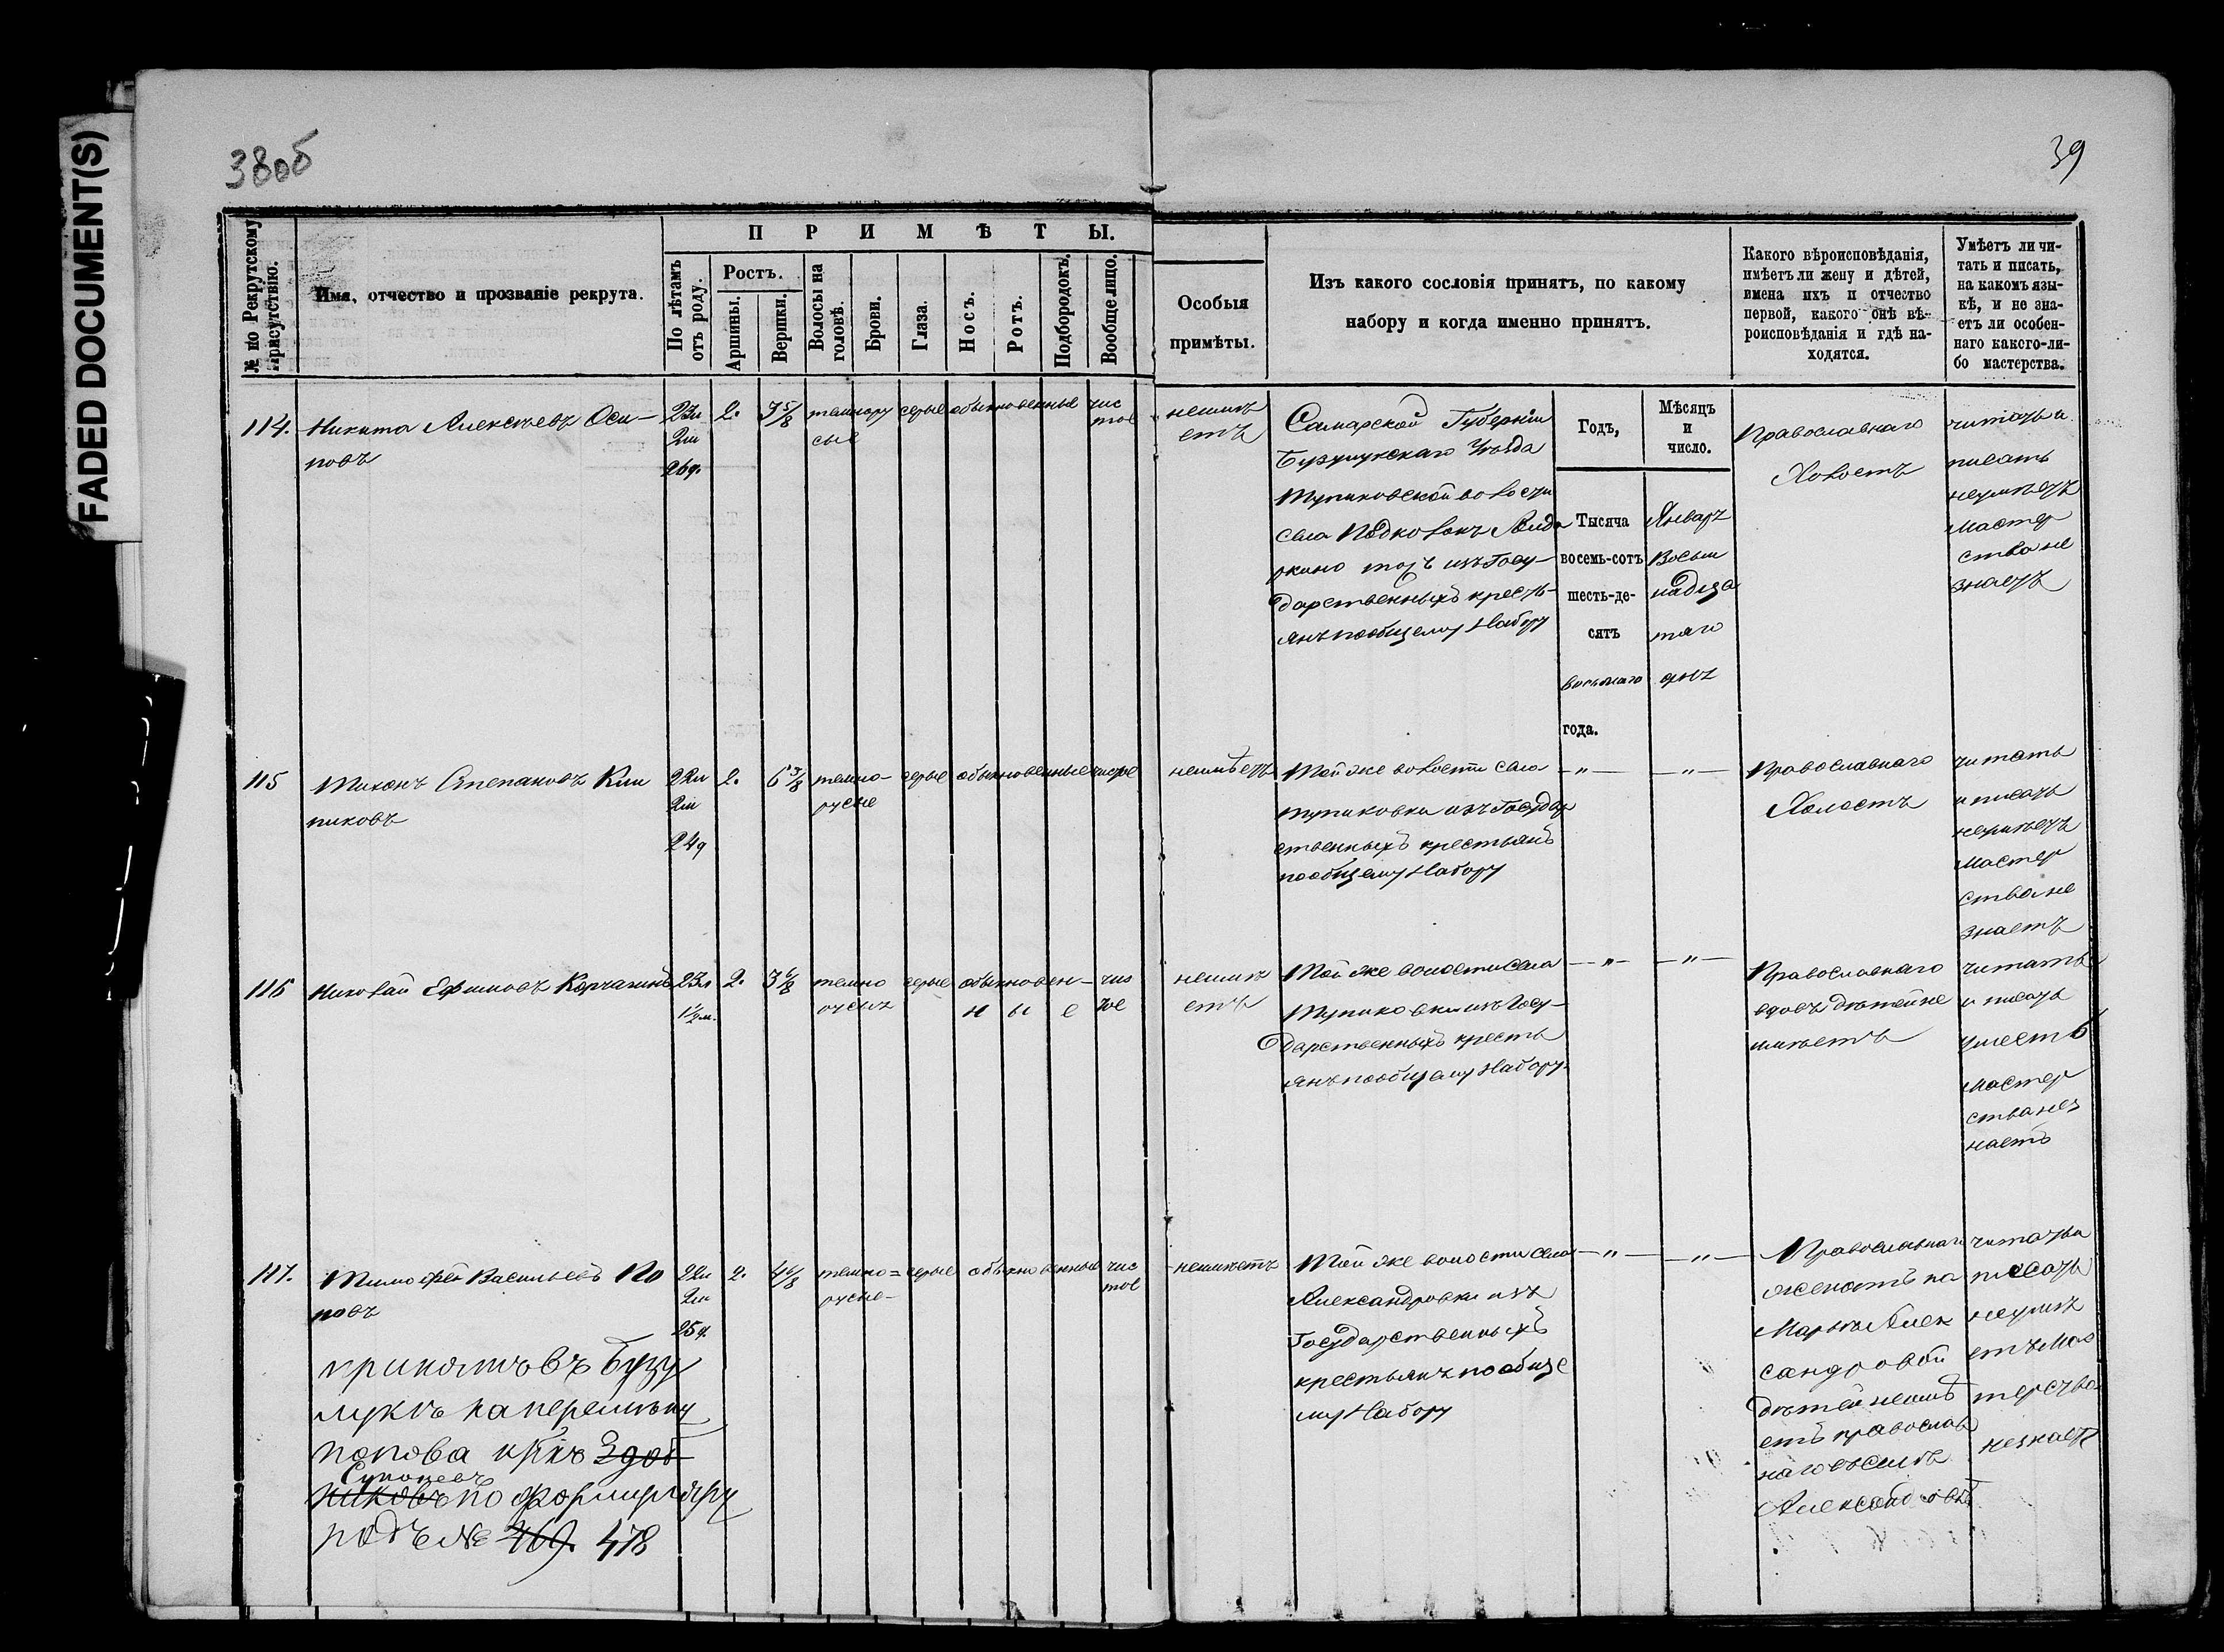 FADED DOCUMENT(S)
38об
39
№ по Рекрутскому присутствію.
Имя, отчество и прозваніе рекрута.
ПРИМѢТЫ.
По лѣтамъ отъ роду.
Ростъ.
Аршины.
Вершки.
Волосы на головѣ.
Брови.
Глаза.
Носъ.
Ротъ.
Подбородокъ.
Вообще лицо.
Особыя
примѣты.
Изъ какого сословія принятъ, по какому
набору и когда именно принятъ.
Какого вѣроисповѣданія,
имѣетъ ли жену и дѣтей,
имена ихъ и отчество
первой, какого онѣ вѣ-
роисповѣданія и гдѣ на-
ходятся.
Умѣетъ ли чи-
тать и писать,
на какомъ язы-
кѣ, и не зна-
етъ ли особен-
наго какого-ли-
бо мастерства.
114.
Никита Алексѣевъ Оси-
повъ
23л
2м
26д.
2.
3 5/8
темнору
сые
серые
обыкновенные
чис
тое
неимѣ
етъ
Самарской Губерніи
Бузулукскаго Уѣзда
Тупиковской волости
села
тожъ изъ Госу-
дарственныхъ кресть-
янъ пообщему Набору
Годъ,
Тысяча
восемь-сотъ
шесть-де-
сятъ
восьмаго
года.
Мѣсяцъ
и
число.
Январь
Восем
надца
таго
дня
Православнаго
Холостъ
читать и
писать
неумѣетъ
мастер
ства не
знаетъ
115
Тихонъ Степановъ Кли
пиковъ
22л
2м
24д
2.
6 3/8
темно-
русые
серые
обыкновенные
чистое
неимѣетъ
Той же волости села
Тупиковки изъ Государ
ственныхъ крестьянъ
пообщему Набору
— " —
— " —
Православнаго
Холостъ
читать
и писать
неумѣетъ
мастер
ства не
знаетъ
116
Николай Ефимовъ Корчагинъ
23л
1/2 м.
2.
3 6/8
темно
русые
серые
обыкновен-
н ы е
чис
тое
неимѣ
етъ
Той же волости села
Тупиковки изъ Госу-
дарственныхъ кресть
янъ пообщему Набору
— " —
— " —
Православнаго
вдовъ дѣтей не
имѣетъ
читать
и писать
умеетъ
мастер
ства нез
наетъ
117.
Тимофей Васильевъ По
повъ
22л
2м
25д.
2.
4 6/8
темно=
русые
серые
обыкновенные
чис
тое
неимѣетъ
Той же волости села
Александровки изъ
Государственныхъ
крестьянъ пообще
му Набору
— " —
— " —
Православнаго
женатъ на
Марьѣ Алек
сандровой
дѣтей неимѣ
етъ православ
наго въ селѣ
Александровкѣ
читать и
писать
неумѣ
етъ мас
терства
незнаетъ
принятъ въ Бузу
лукѣ на перемѣну
попова
Супоневъ
по формуляру
подъ № 469. 478